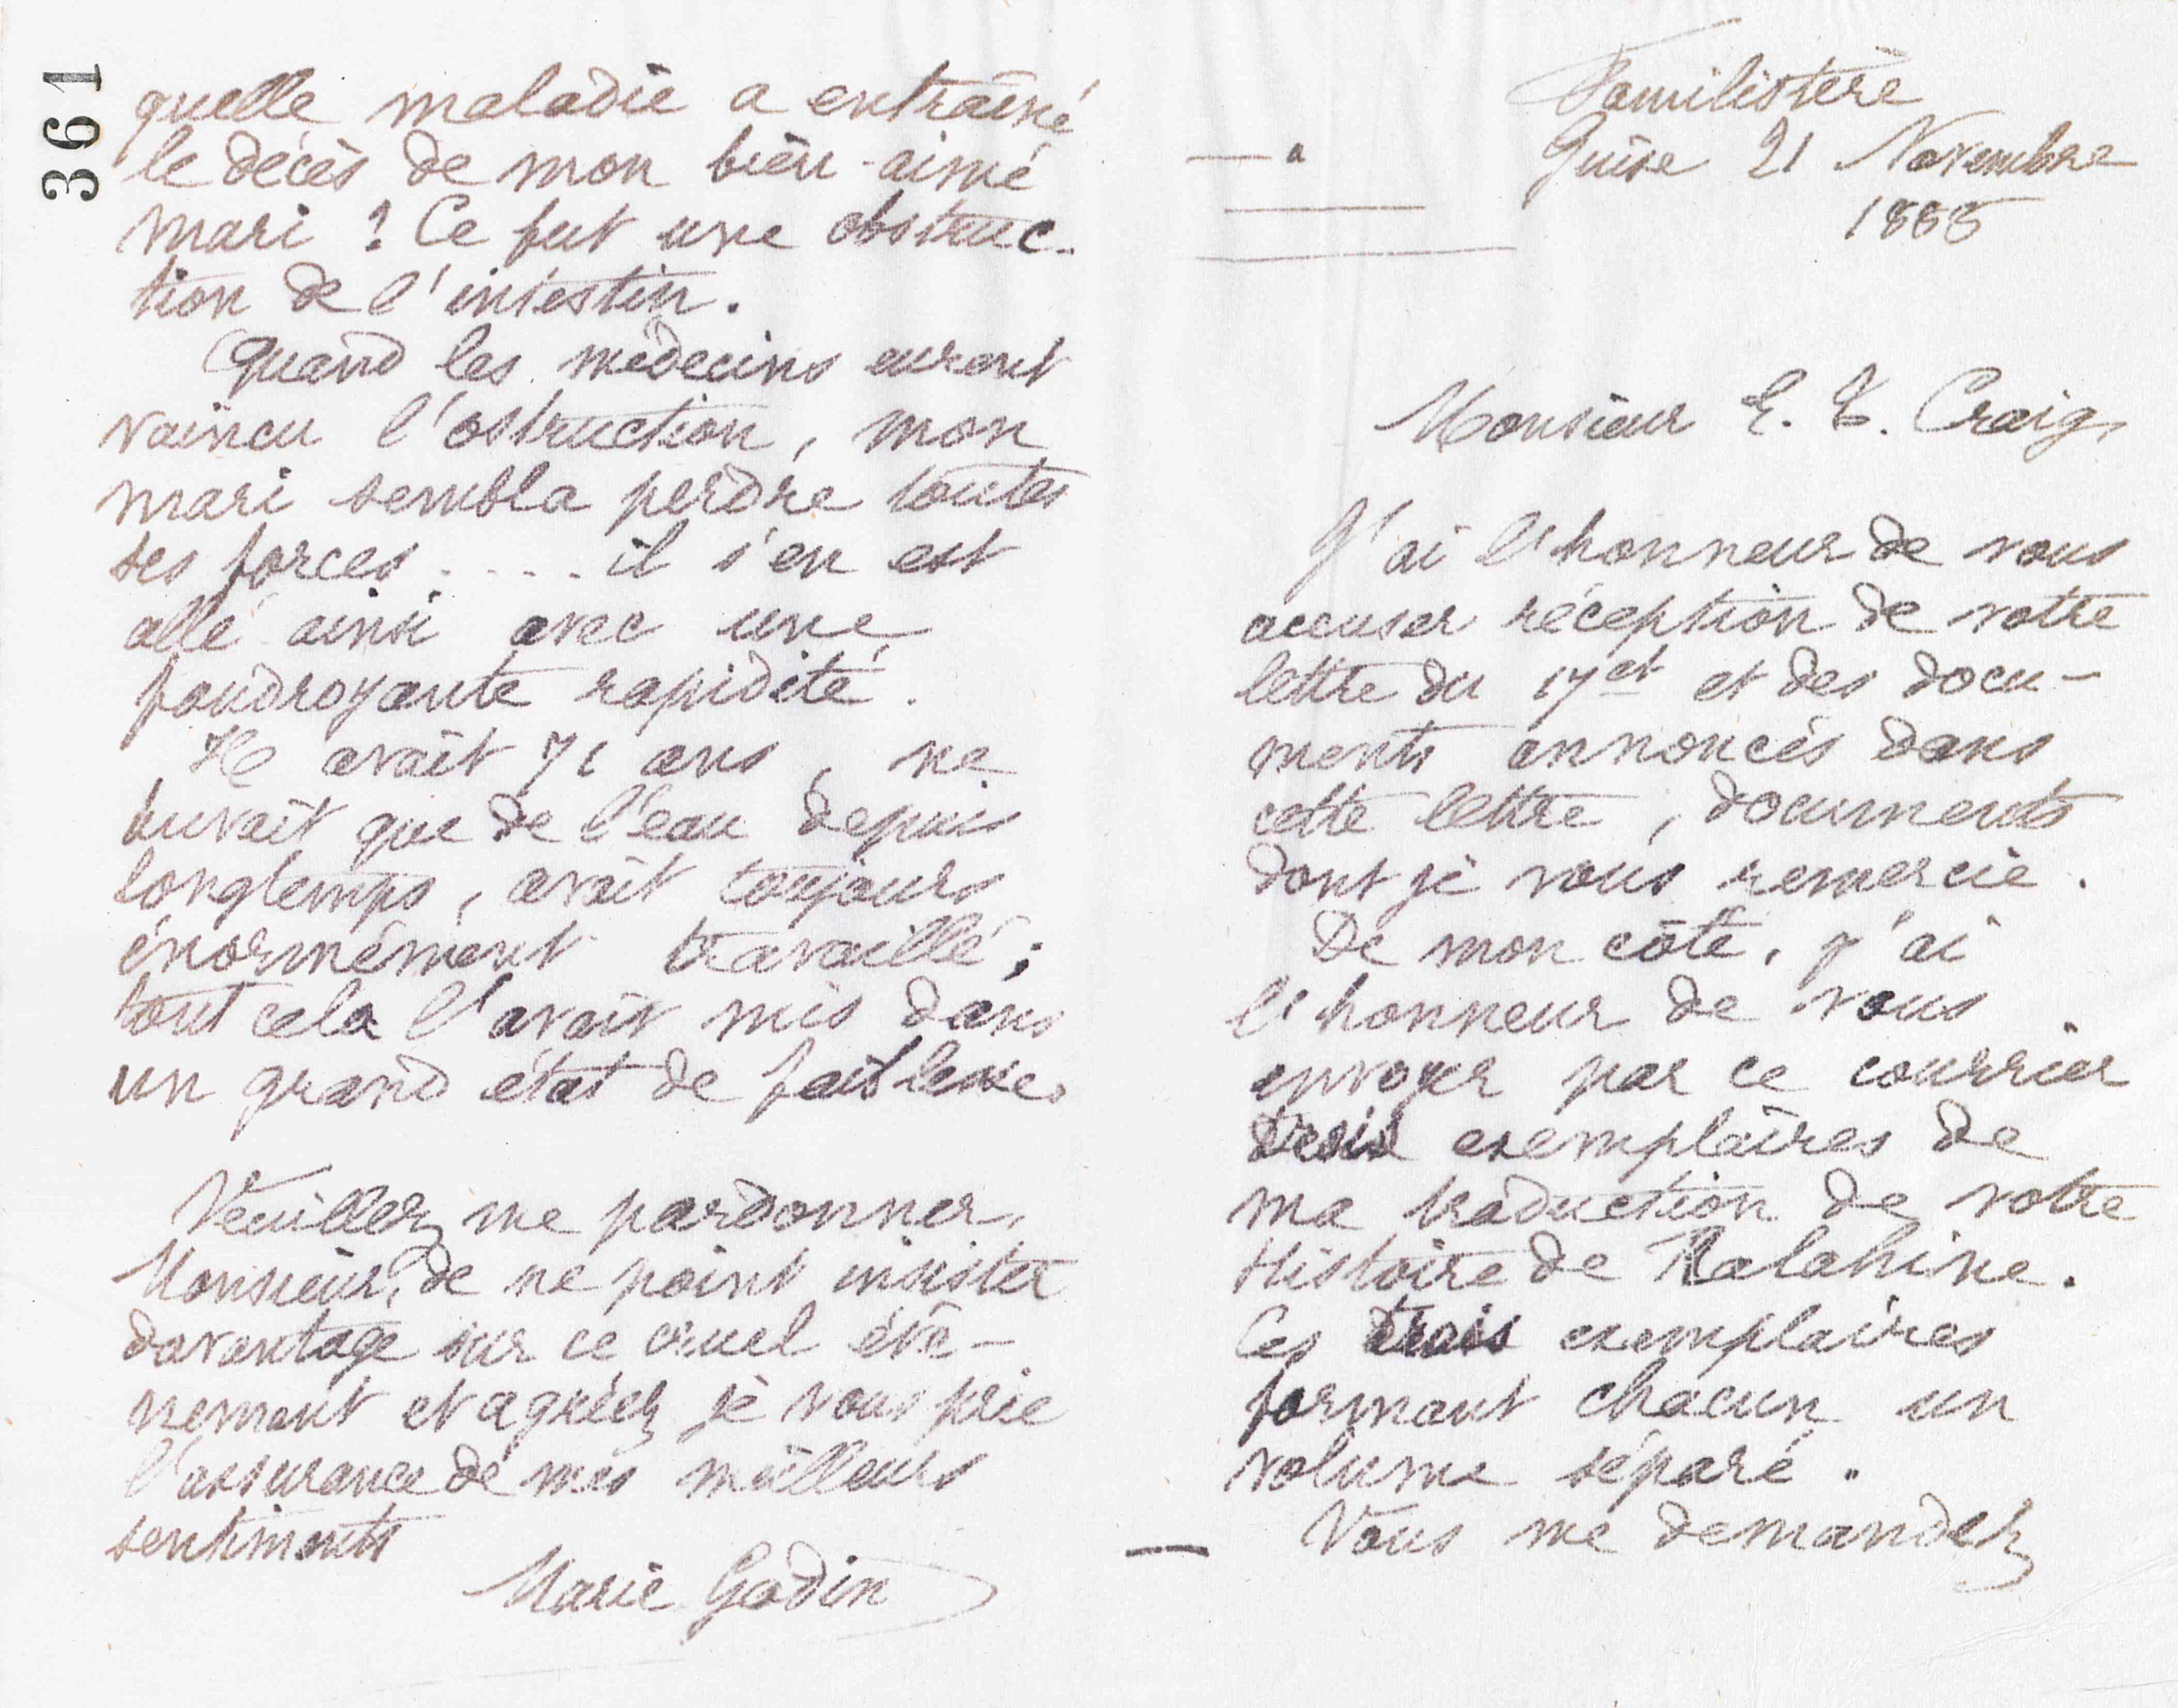 Familistère
Guise 21 Novembre
1888
Monsieur E. T. Craig,
J'ai l'honneur de vous
accuser réception de votre
lettre du 17 ct et des docu-
ments annoncés dans
cette lettre, documents
dont je vous remercie.
De mon côté, j'ai
l'honneur de vous
envoyer par ce courrier
trois exemplaires de
ma traduction de votre
Histoire de Ralahine.
Ces trois exemplaires
formant chacun un
volume séparé.
Vous me demandez
361
quelle maladie a entraîné
le décès de mon bien-aimé
mari ? Ce fut une obstruc-
tion de l'intestin.
Quand les médecins euront
vaincu l'ostruction, mon
mari sembla perdre toutes
ses forces .... il s'en est
allé ainsi avec une
foudroyante rapidité.
Il avait 71 ans, ne
buvait que de l'eau depuis
longtemps, avait toujours
énormément travaillé ;
tout cela l'avait mis dans
un grand état de faiblesse.
Veuillez me pardonner,
Monsieur, de ne point insister
davantage sur ce cruel évé-
nement et agréez je vous prie
l'assurance de mes meilleurs
sentiments
Marie Godin